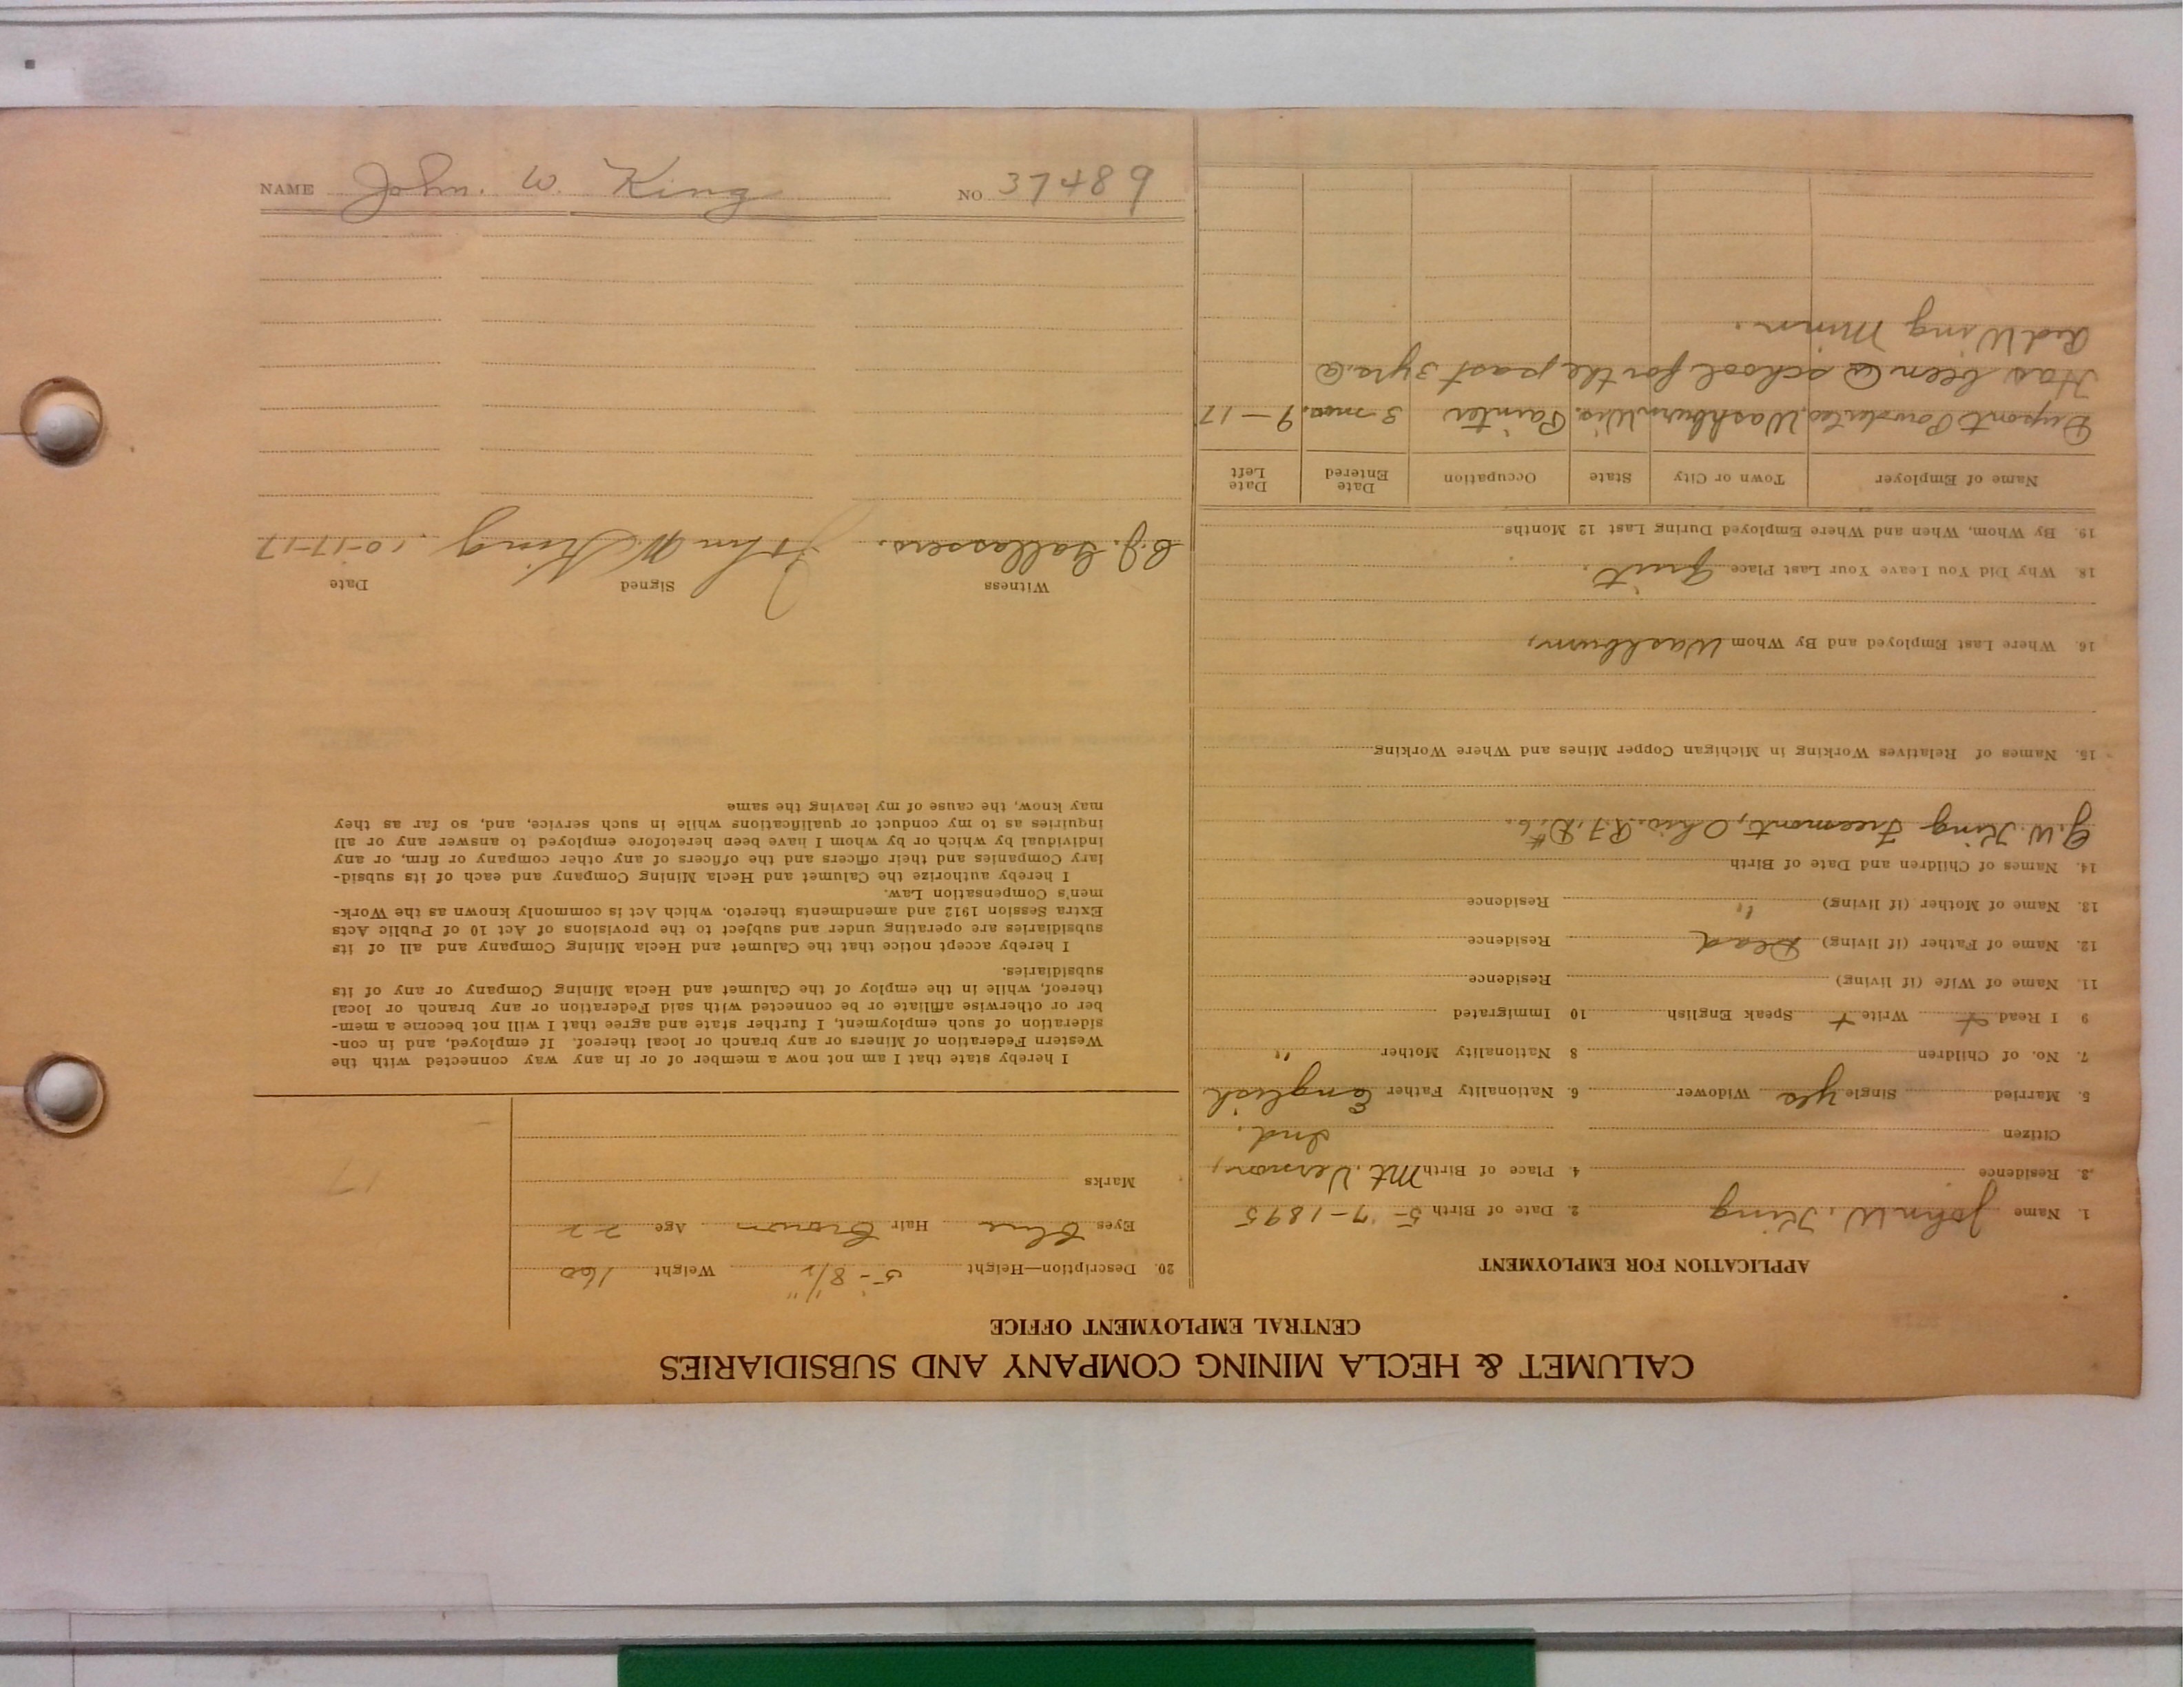 CALUMET & HECLA MINING COMPANY AND SUBSIDIARIES
CENTRAL EMPLOYMENT OFFICE
APPLICATION FOR EMPLOYMENT
1. Name John W. King 2. Date of Birth 5-7-1895
3. Residence 4. Place of Birth Mt. Vernon,
Citizen Ind.
5. Married Single yes Widower 6. Nationality Father English
7. No. of Children 8 Nationality Mother "
9 I Read + Write + Speak English 10 Immigrated
11. Name of Wife (if living) Residence
12. Name of Father (if living) Dead Residence
13. Name of Mother (if living) " Residence
14. Names of Children and Date of Birth
G.W. King Freemont, Ohio. R.F.D.#6.
15. Names of Relatives Working in Michigan Copper Mines and Where Working
16. Where Last Employed and By Whom Washburn,
18. Why Did You Leave Your Last Place Quit.
19. By Whom, When and Where Employed During Last 12 Months
Name of Employer Town or City State Occupation Date Entered Date Left
Dupont Powder Co. Washburn Wis. Painter 3 mos. 9-17
Has been @ school for the past 3 yrs. @
Red Wing Minn.
20. Description—Height 5'-8 1/2" Weight 160
Eyes Blue Hair Brown Age 22
Marks
17
I hereby state that I am not now a member of or in any way connected with the
Western Federation of Miners or any branch or local thereof. If employed, and in con-
sideration of such employment, I further state and agree that I will not become a mem-
ber or otherwise affiliate or be connected with said Federation or any branch or local
thereof, while in the employ of the Calumet and Hecla Mining Company or any of its
subsidiaries.
I hereby accept notice that the Calumet and Hecla Mining Company and all of its
subsidiaries are operating under and subject to the provisions of Act 10 of Public Acts
Extra Session 1912 and amendments thereto, which Act is commonly known as the Work-
men's Compensation Law.
I hereby authorize the Calumet and Hecla Mining Company and each of its subsid-
iary Companies and their officers and the officers of any other company or firm, or any
individual by which or by whom I have been heretofore employed to answer any or all
inquiries as to my conduct or qualifications while in such service, and, so far as they
may know, the cause of my leaving the same
Witness Signed Date
John W King 10-17-17
NAME John. W. King NO 37489